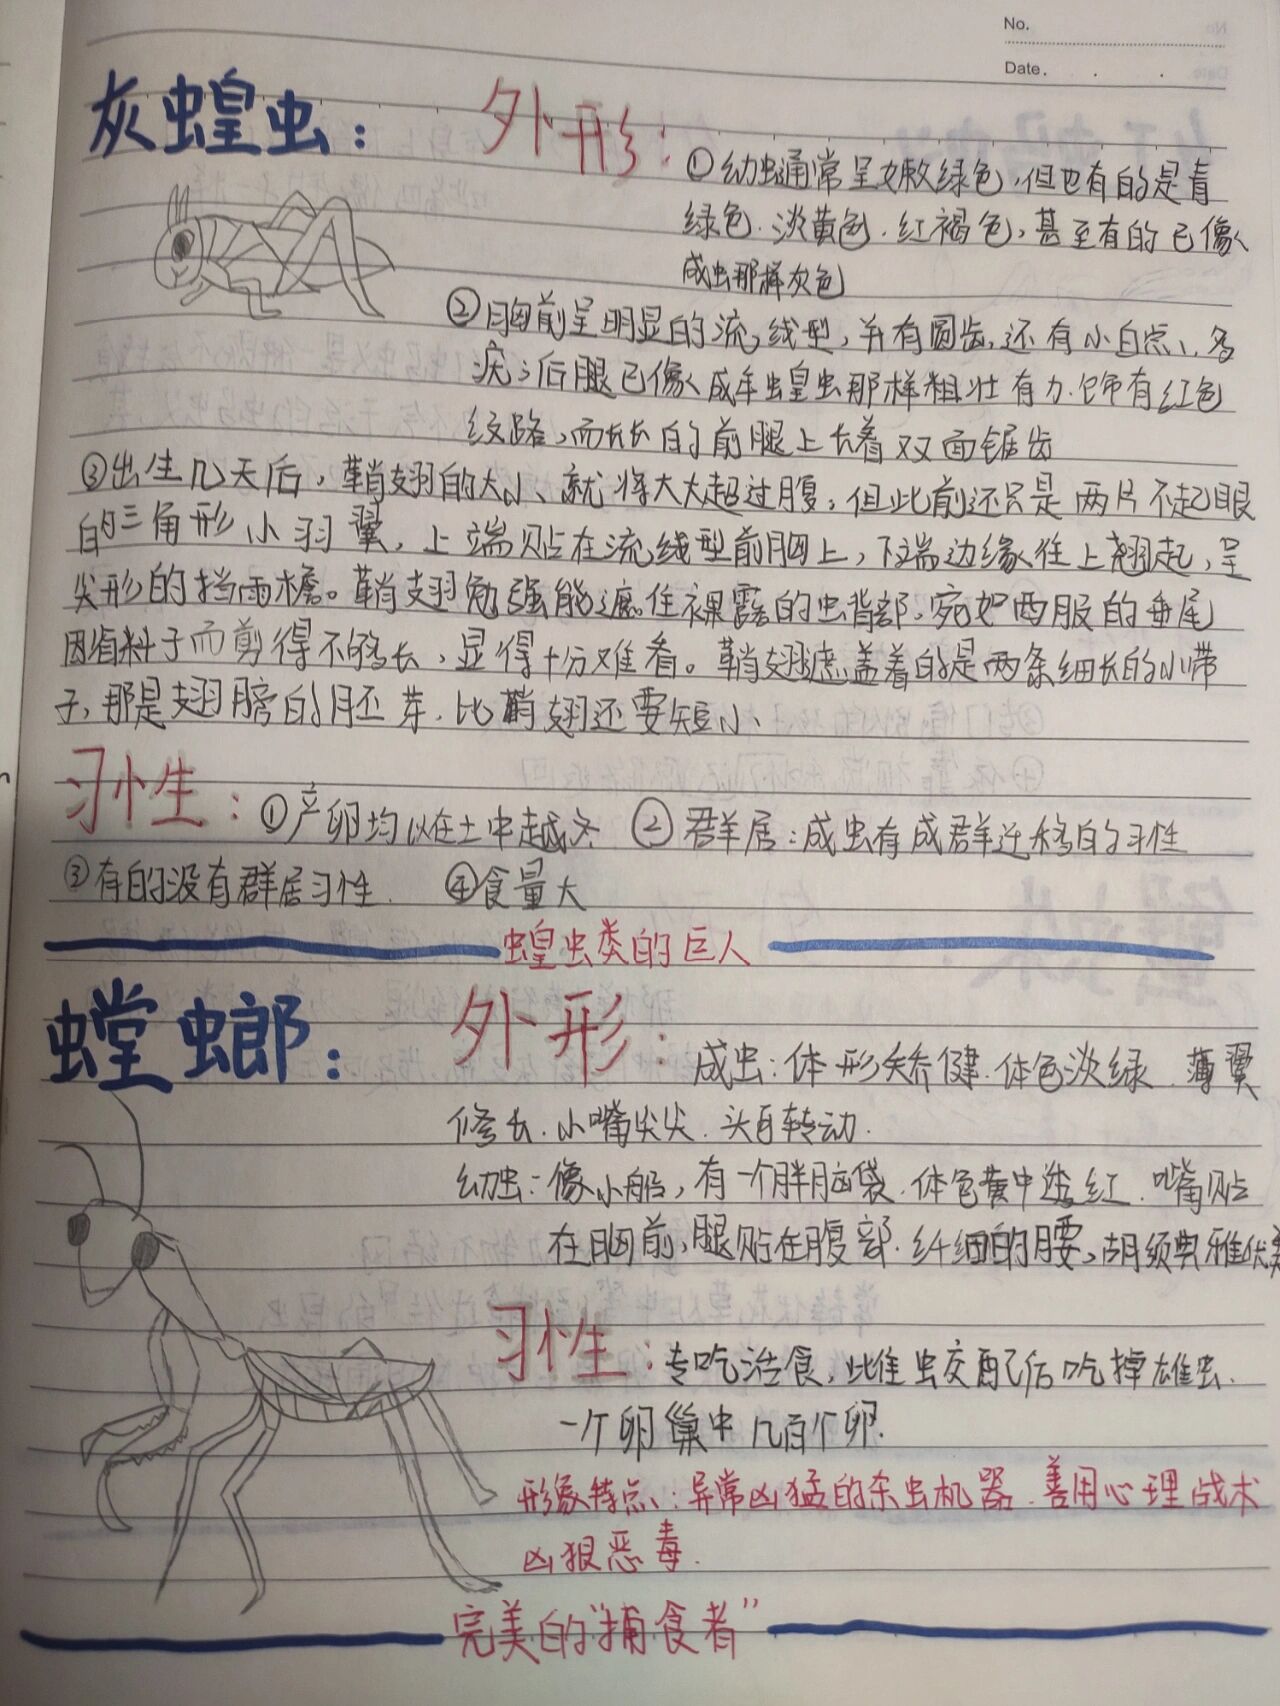 No.
Date.
灰蝗虫：
外形：
①幼虫通常呈嫩绿色，但也有的是青
绿色.淡黄色.红褐色，甚至有的已像
成虫那样灰色
②胸前呈明显的流线型，并有圆齿，还有小白点、多
疣；后腿已像成年蝗虫那样粗壮有力.饰有红色
纹路，而长长的前腿上长着双面锯齿
③出生几天后，鞘翅的大小、就将大大超过腹，但此前还只是两片不起眼
的三角形小羽翼，上端贴在流线型前胸上，下端边缘往上翘起，呈
尖形的挡雨檐。鞘翅勉强能遮住裸露的虫背部，宛如西服的垂尾
因省料子而剪得不够长，显得十分难看。鞘翅遮盖着的是两条细长的小带
子，那是翅膀的胚芽，比鞘翅还要短小、
习性：①产卵均以在土中越冬 ②群居：成虫有成群迁移的习性
③有的没有群居习性. ④食量大
蝗虫类的巨人
螳螂：
外形：
成虫：体形矫健.体色淡绿.薄翼
修长.小嘴尖尖.头可转动.
幼虫：像小船，有一个胖脑袋.体色黄中透红.嘴贴
在胸前，腿贴在腹部.纤细的腰，胡须典雅优美
习性：专吃活食，雌虫交配后吃掉雄虫.
一个卵巢中几百个卵.
形象特点、：异常凶猛的杀虫机器.善用心理战术
凶狠恶毒.
完美的“捕食者”